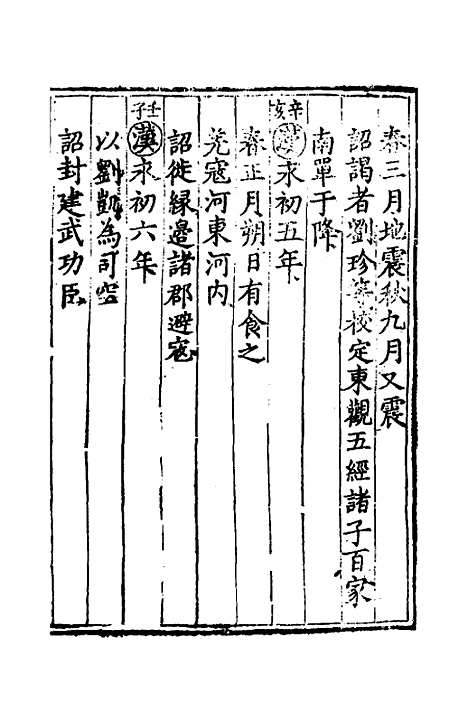 春三月地震秋九月又震
詔謁者劉珍等校定東觀五經諸子百家
南單于降
辛亥 漢永初五年
春正月朔日有食之
羌寇河東河内
詔徙緣邊諸郡避寇
壬子 漢永初六年
以劉愷為司空
詔封建武功臣